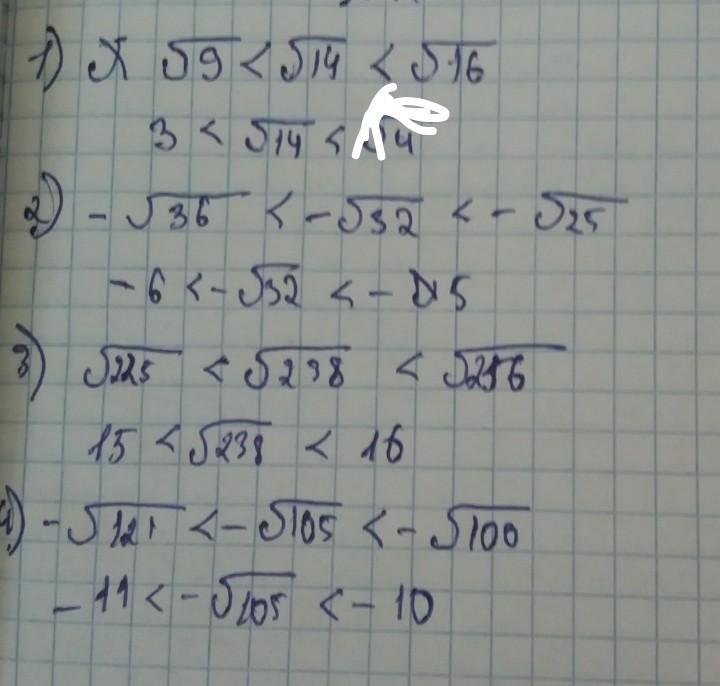 1) √9 < √14 < √16
3 < √14 < √4
2) - √36 < - √32 < - √25
- 6 < - √32 < - 5
3) √225 < √238 < √256
15 < √238 < 16
4) - √121 < - √105 < - √100
- 11 < - √105 < - 10